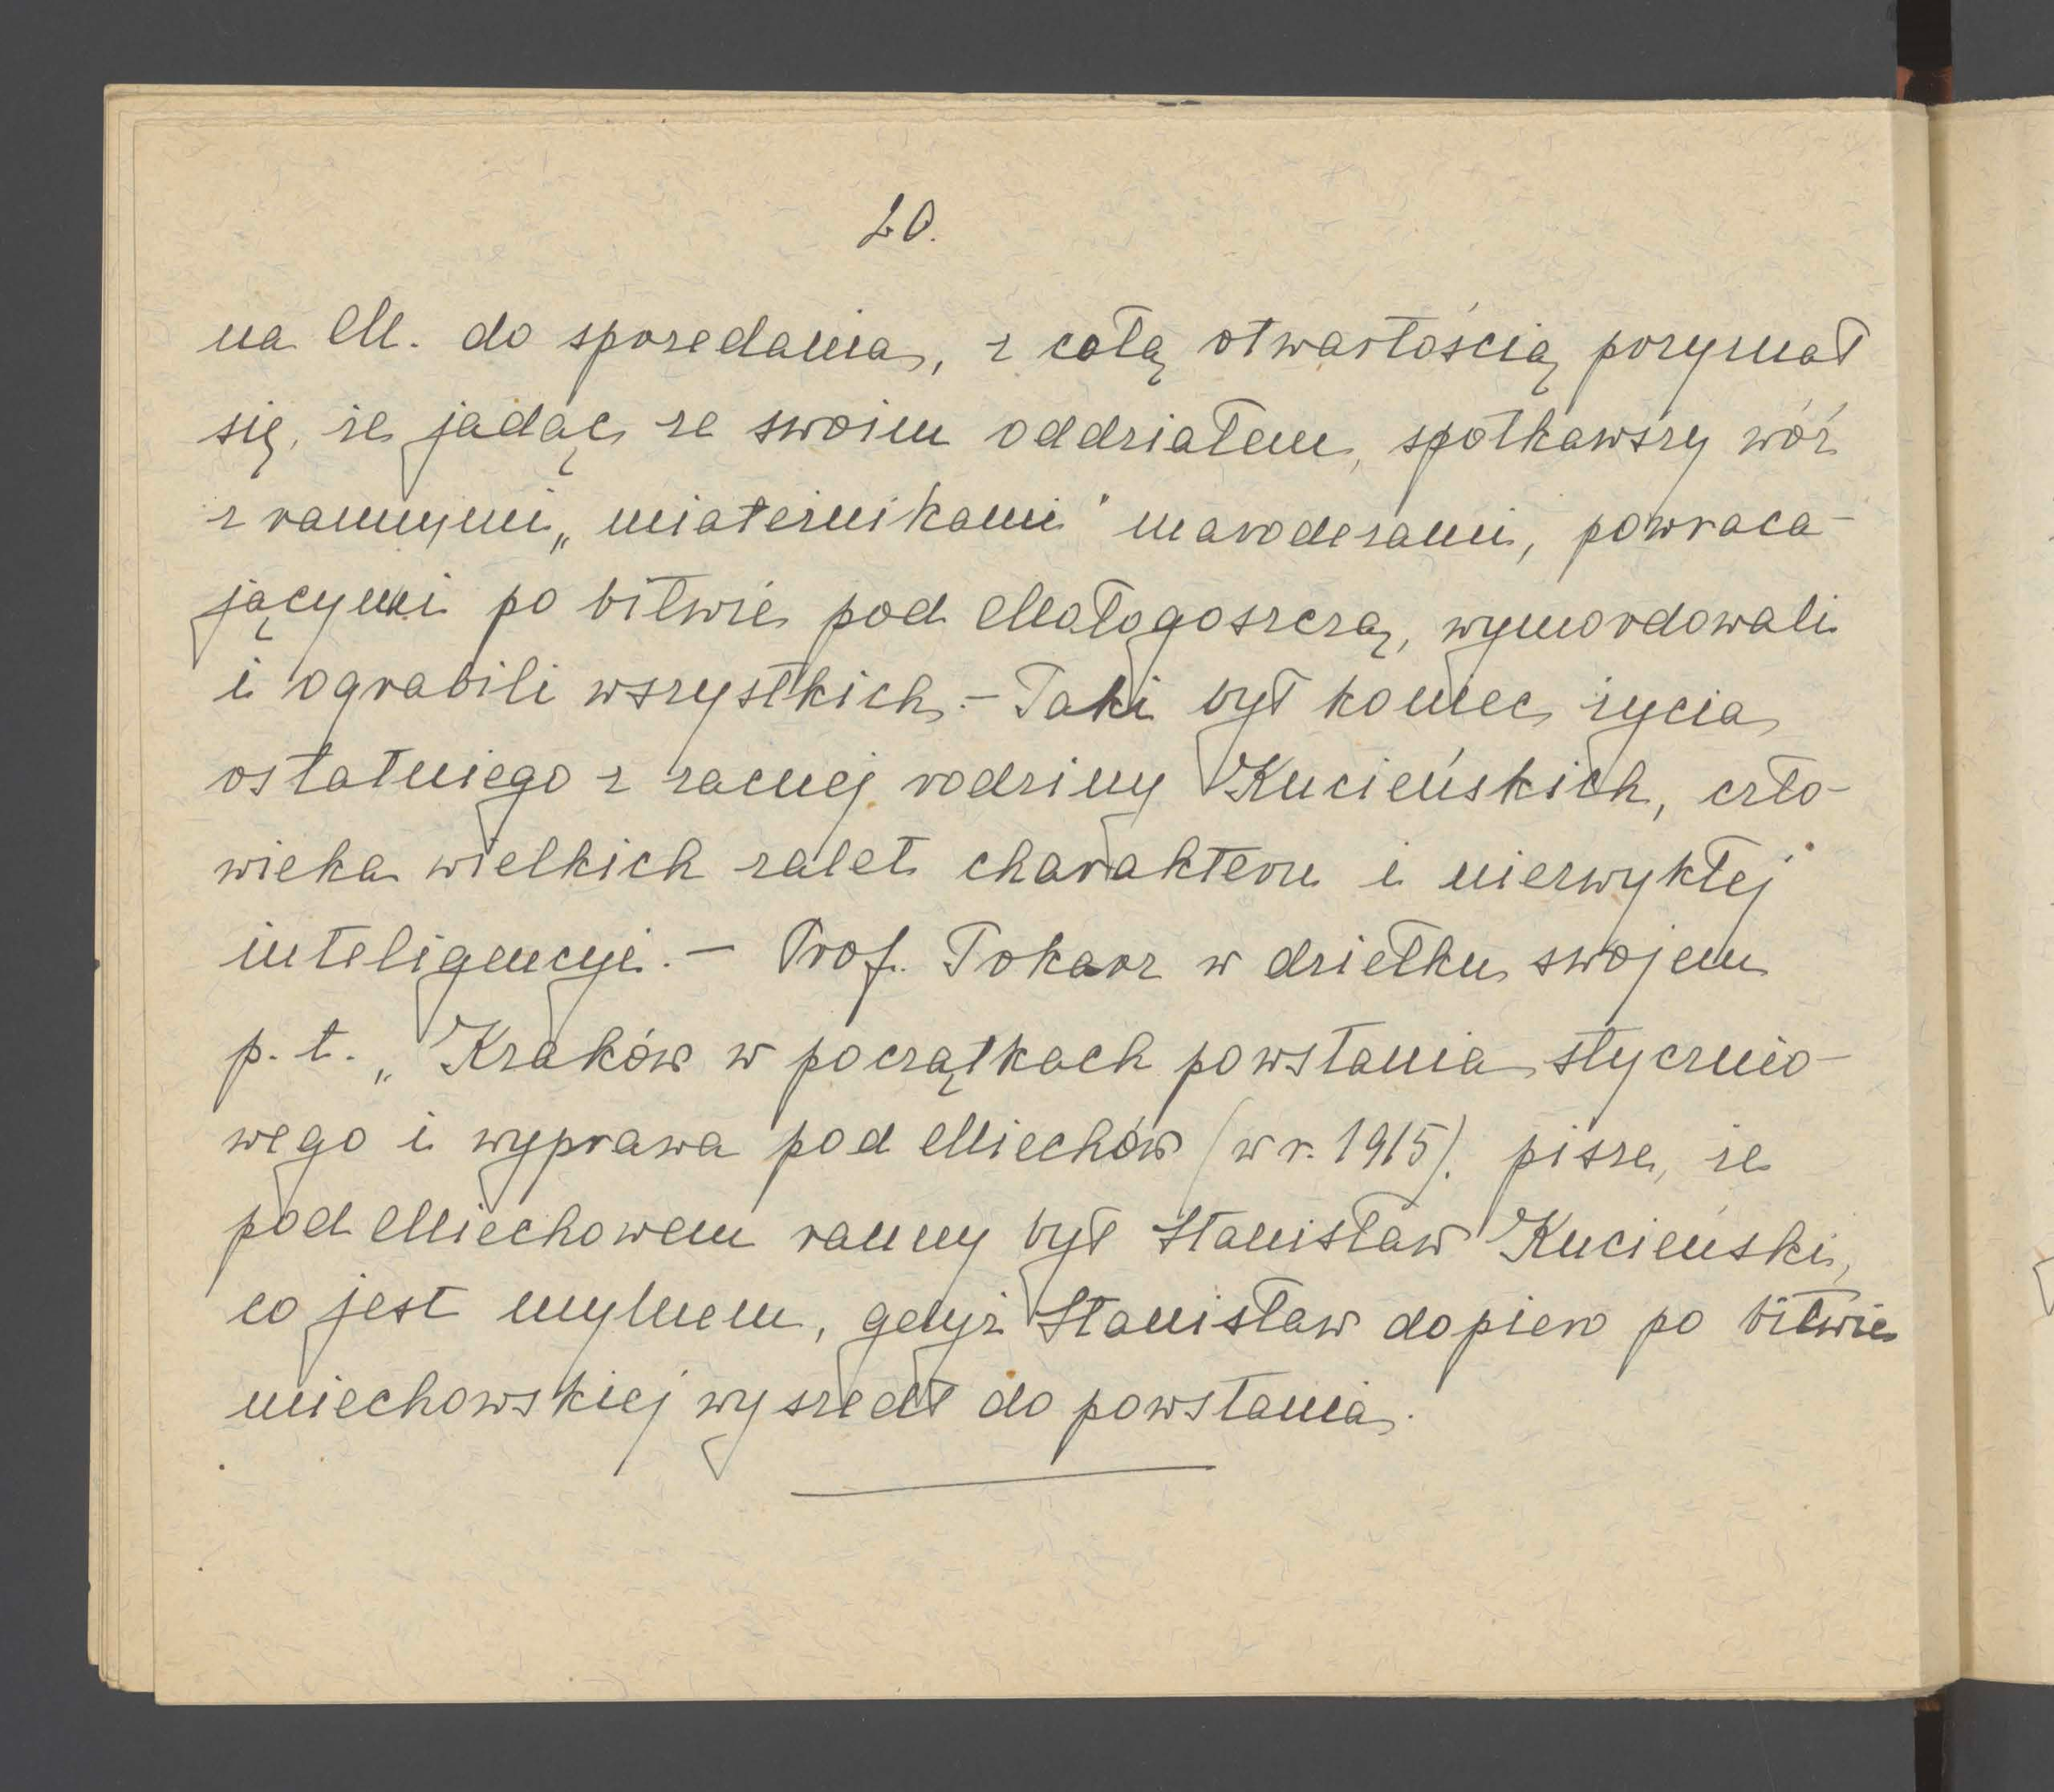 20.
na M. do sprzedania, z całą otwartością przyznał
się, że jadąc ze swoim oddziałem, spotkawszy wóz
z rannymi „miateżnikami" maroderami, powraca-
jącymi po bitwie pod Małogoszczą, wymordowali
i ograbili wszystkich. - Taki był koniec życia
ostatniego z zacnej rodziny Kucieńskich, czło-
wieka wielkich zalet charakteru i niezwykłej
inteligencyi. - Prof. Tokarz w dziełku swojem
p. t. „Kraków w początkach powstania stycznio-
wego i wyprawa pod Miechów (w r. 1915). pisze, że
pod Miechowem ranny był Stanisław Kucieński,
co jest mylnem, gdyż Stanisław dopiero po bitwie
miechowskiej wyszedł do powstania.